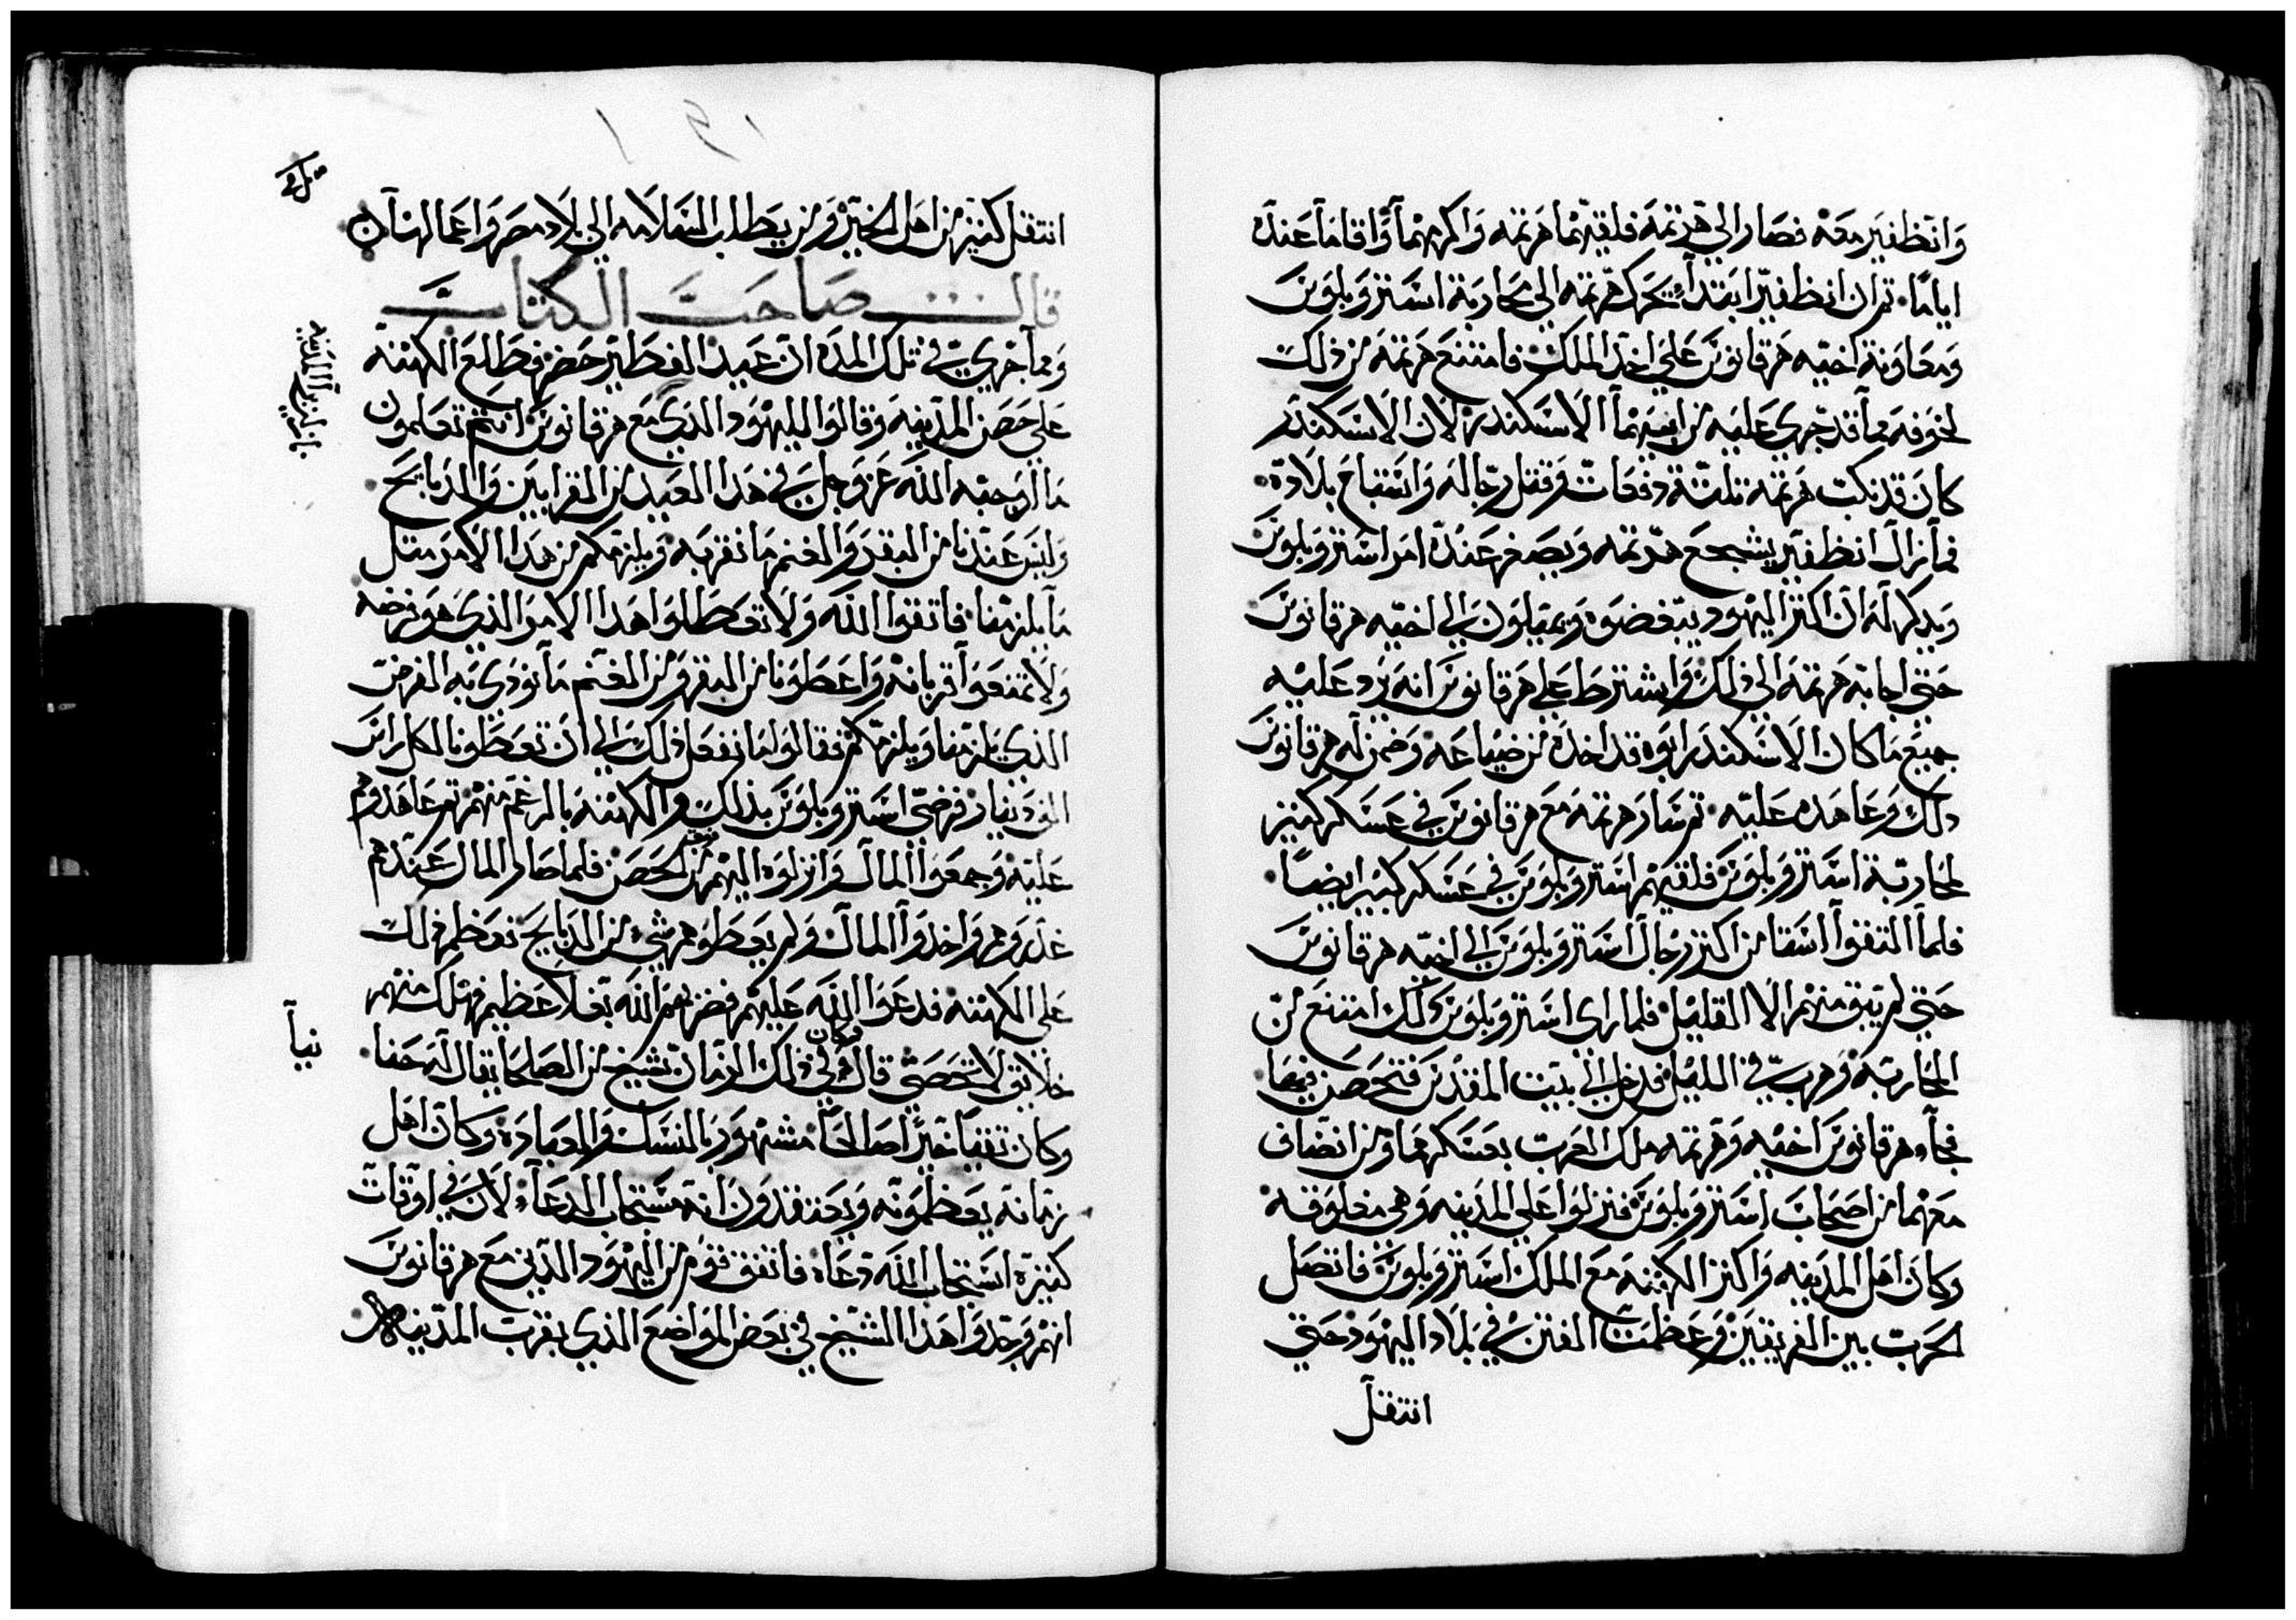 وانظفير معه فصار الي هرتمة فلقيهما هرتمه واكرمهما واقاما عنده
اياما ثم ان انظفير ابتدا يحرك هرتمه الي محاربة استروبلوس
ومعاونة اخيه هرقانوس علي اخد الملك فامتنع هرتمه من ذلك
لخوفه مما قد جري عليه من ابيهما الاسكندر لان الاسكندر
كان قد نكب هرتمه تلتة دفعات وقتل رجاله واستباح بلاده
فما زال انظفير يشجع هرتمه ويصغر عنده امر استروبلوس
ويدكر له ان اكتر اليهود يبغضوه ويميلون الي اخيه هرقانوس
حتي اجابه هرتمه الي ذلك واشترط علي هرقانوس انه يرد عليه
جميع ما كان الاسكندر ابوه قد اخده من ضياعه وضمن له هرقانوس
دلك وعاهده عليه ثم سار هرتمه مع هرقانوس في عسكر كتير
لمحاربة استروبلوس فلقيهم استروبلوس في عسكر كبير ايضا
فلما التقوا استامن اكتر رجال استروبلوس الي اخيه هرقانوس
حتي لم يبق منهم الا القليل فلما راى استروبلوس ذلك امتنع من
المحاربه وهرب في الليل فدخل الي بيت المقدس فتحصن فيها
فجاء هرقانوس اخيه وهرتمه ملك العرب بعسكرهما ومن انضاف
معهما من اصحاب استروبلوس فنزلوا علي المدينه وهي مغلوقه
وكان اهل المدينه واكتر الكهنة مع الملك استروبلوس فاتصل
الحرب بين الفريقين وعظمت الفتن في بلاد اليهود حتي
انتقل
انتقل كتير من اهل الخير ومن يطلب السلامه الي بلاد مصر واعمالها
قال صاحب الكتاب
ومما جري في تلك المده ان عيد الفطير حضر فطلع الكهنة
علي حصن المدينه وقالوا لليهود الذي مع هرقانوس انتم تعلمون
ما اوجبه الله عز وجل في هدا العيد من القرابين والدبايح
وليس عندنا من البقر والغنم ما نقربه ويلزمكم من هدا الامر متل
ما يلزمنا فاتقوا الله ولا تعطلوا هدا الامر الذي هو فرضه
ولا تمنعوا قربانه واعطونا من البقر ومن الغنم ما نودي به الفرض
الذي يلزمنا ويلزمكم فقالوا ما نفعل ذلك الي ان تعطونا لكل راس
الف دينار فرضي استروبلوس بذلك والكهنه بالرغم منهم ثم عاهدوهم
عليه وجمعوا المال وانزلوه اليهم من الحصن فلما صار المال عندهم
غدروهم واخدوا المال ولم يعطوهم شي من الدبايح فعظم ذلك
علي الكهنه فدعوا الله عليهم فضربهم الله بغلا عظيم فهلك منهم
خلايق لا تحصي قال وكان في ذلك الزمان شيخ من الصلحا يقال له حفا
نيا
وكان تقيا خيرا صالحا مشهور بالنسك والعباده وكان اهل
زمانه يعظمونه ويعتقدون انه مستجاب الدعاء لان في اوقات
كتيره استجاب الله دعاه فاتفق قوم من اليهود الذين مع هرقانوس
انهم وجدوا هدا الشيخ في بعض المواضع الذي بقرب المدينه